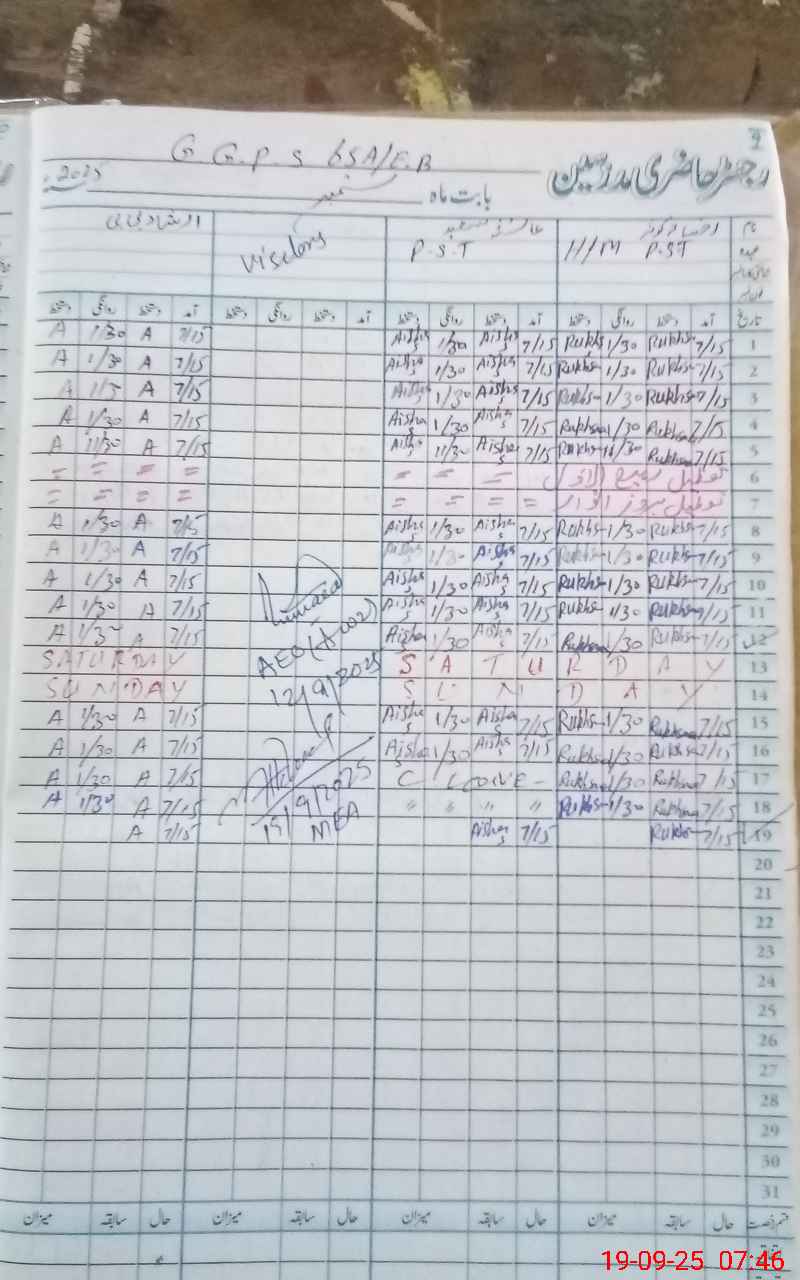 رجسٹر حاضری مدرسین
G.G.P.S 65A/E.B
بابت ماہ ستمبر 2025
نام
عہدہ
H/M P.ST
P.S.T
visitors
تاریخ آمد دستخط روانگی دستخط آمد دستخط روانگی دستخط آمد دستخط روانگی دستخط آمد دستخط روانگی دستخط
1 7/15 Rukhs 1/30 Rukhs 7/15 Aisha 1/30 Aisha 7/15 A 1/30 A
2 7/15 Rukhs 1/30 Rukhs 7/15 Aisha 1/30 Aisha 7/15 A 1/30 A
3 7/15 Rukhs 1/30 Rukhs 7/15 Aisha 1/30 Aisha 7/15 A A
4 7/15 Rukhs 1/30 Rukhs 7/15 Aisha 1/30 Aisha 7/15 A 1/30 A
5 7/15 Rukhs 11/30 Rukhs 7/15 Aisha 11/30 Aisha 7/15 A 11/30 A
6 تعطیل ربیع الاول = = = = = = =
7 تعطیل بروز اتوار = = = = = = = =
8 7/15 Rukhs 1/30 Rukhs 7/15 Aisha 1/30 Aisha 7/15 A 1/30 A
9 7/15 Rukhs 1/30 Rukhs 7/15 Aisha 1/30 Aisha 7/15 A 1/30 A
10 7/15 Rukhs 1/30 Rukhs 7/15 Aisha 1/30 Aisha 7/15 A 1/30 A
11 7/15 Rukhs 1/30 Rukhs 7/15 Aisha 1/30 Aisha 7/15 A 1/30 A
12 7/15 Rukhs 1/30 Rukhs 7/15 Aisha 1/30 Aisha 7/15 A 1/30 A
AEO
12/9/2025
13 SATURDAY SATURDAY
14 SUNDAY SUNDAY
15 7/15 Rukhs 1/30 Rukhs 7/15 Aisha 1/30 Aisha 7/15 A 1/30 A
16 7/15 Rukhs 1/30 Rukhs 7/15 Aisha 1/30 Aisha 7/15 A 1/30 A
17 7/15 Rukhs 1/30 Rukhs C Leave - 7/15 A 1/30 A
18 7/15 Rukhs 1/30 Rukhs " " " " 7/15 A 1/30 A
19 7/15 Rukhs 7/15 Aisha 7/15 A
19/9/2025
MEA
20
21
22
23
24
25
26
27
28
29
30
31
حال سابقہ میزان حال سابقہ میزان حال سابقہ میزان حال سابقہ میزان
19-09-25 07:46